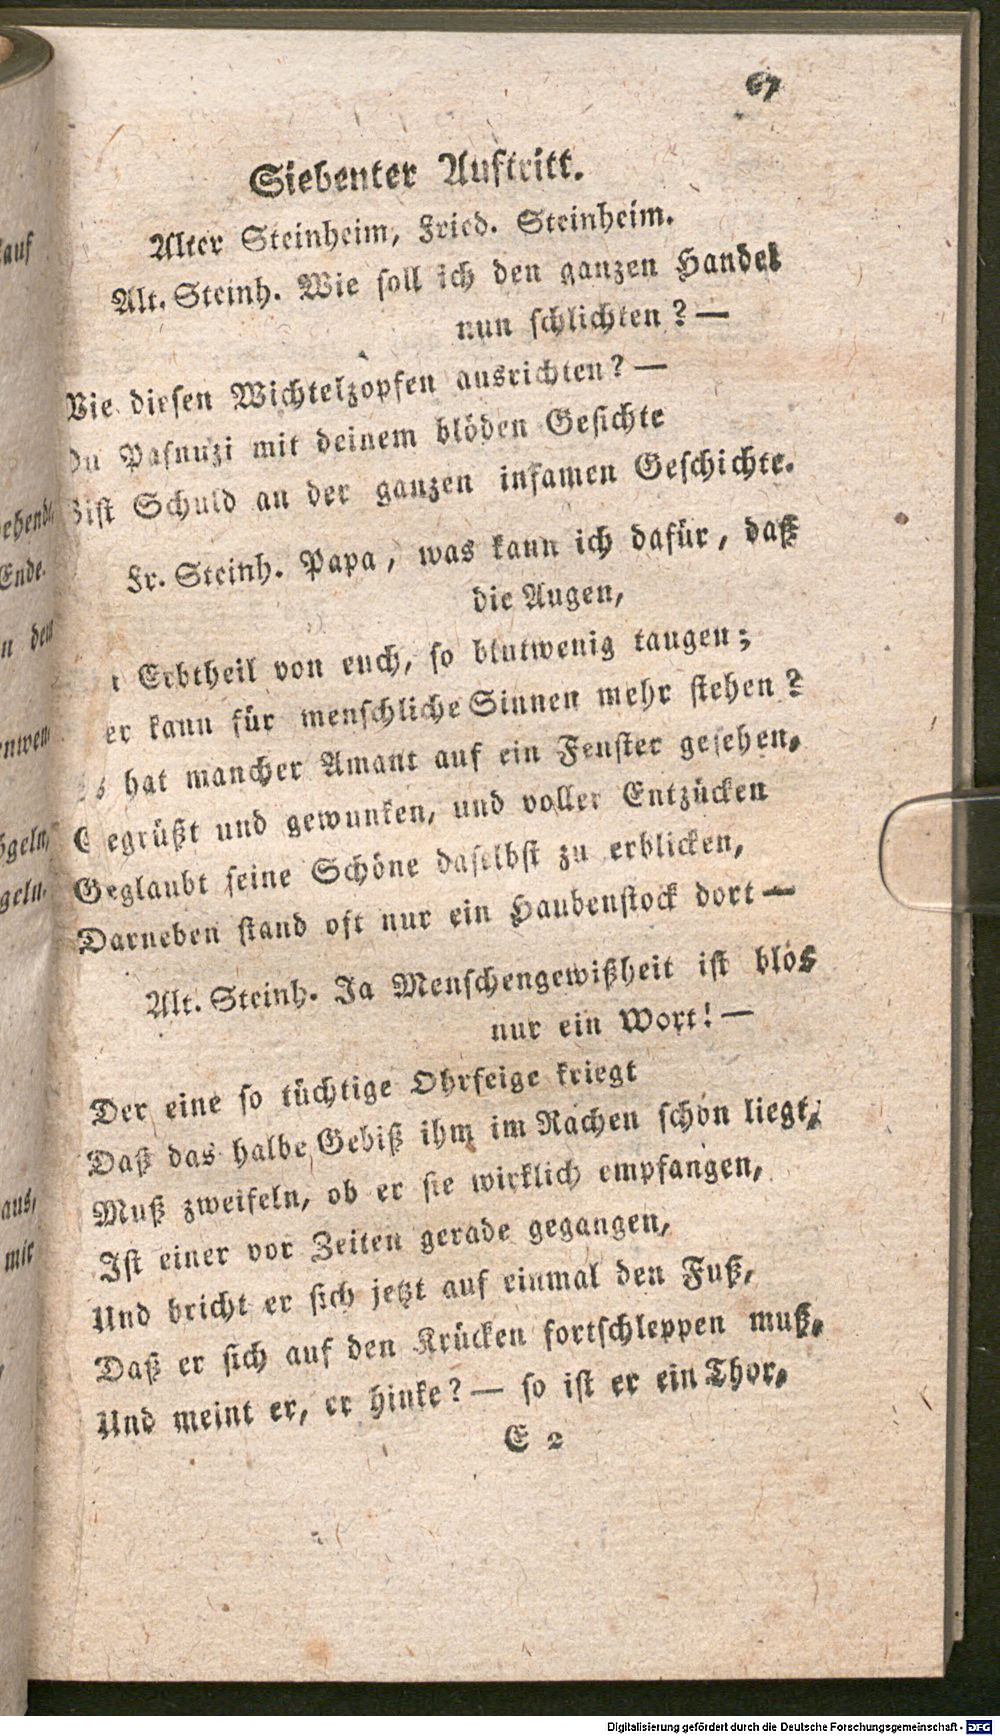 67
Siebenter Auftritt.
Alter Steinheim, Fried. Steinheim.
Alt. Steinh. Wie soll ich den ganzen Handel
nun schlichten? —
Wie diesen Wichtelzopfen ausrichten? —
Du Pasnuzi mit deinem blöden Gesichte
Bist Schuld an der ganzen infamen Geschichte.
Fr. Steinh. Papa, was kann ich dafür, daß
die Augen,
Erbtheil von euch, so blutwenig taugen;
er kann für menschliche Sinnen mehr stehen?
s hat mancher Amant auf ein Fenster gesehen,
Gegrüßt und gewunken, und voller Entzücken
Geglaubt seine Schöne daselbst zu erblicken,
Darneben stand oft nur ein Haubenstock dort —
Alt. Steinh. Ja Menschengewißheit ist blos
nur ein Wort! —
Der eine so tüchtige Ohrfeige kriegt
Daß das halbe Gebiß ihm im Rachen schon liegt,
Muß zweifeln, ob er sie wirklich empfangen,
Ist einer vor Zeiten gerade gegangen,
Und bricht er sich jetzt auf einmal den Fuß,
Daß er sich auf den Krücken fortschleppen muß,
Und meint er, er hinke? — so ist er ein Thor,
E 2
kauf
Ende.
n den
geln,
geln.
aus,
mir
Digitalisierung gefördert durch die Deutsche Forschungsgemeinschaft - DFG